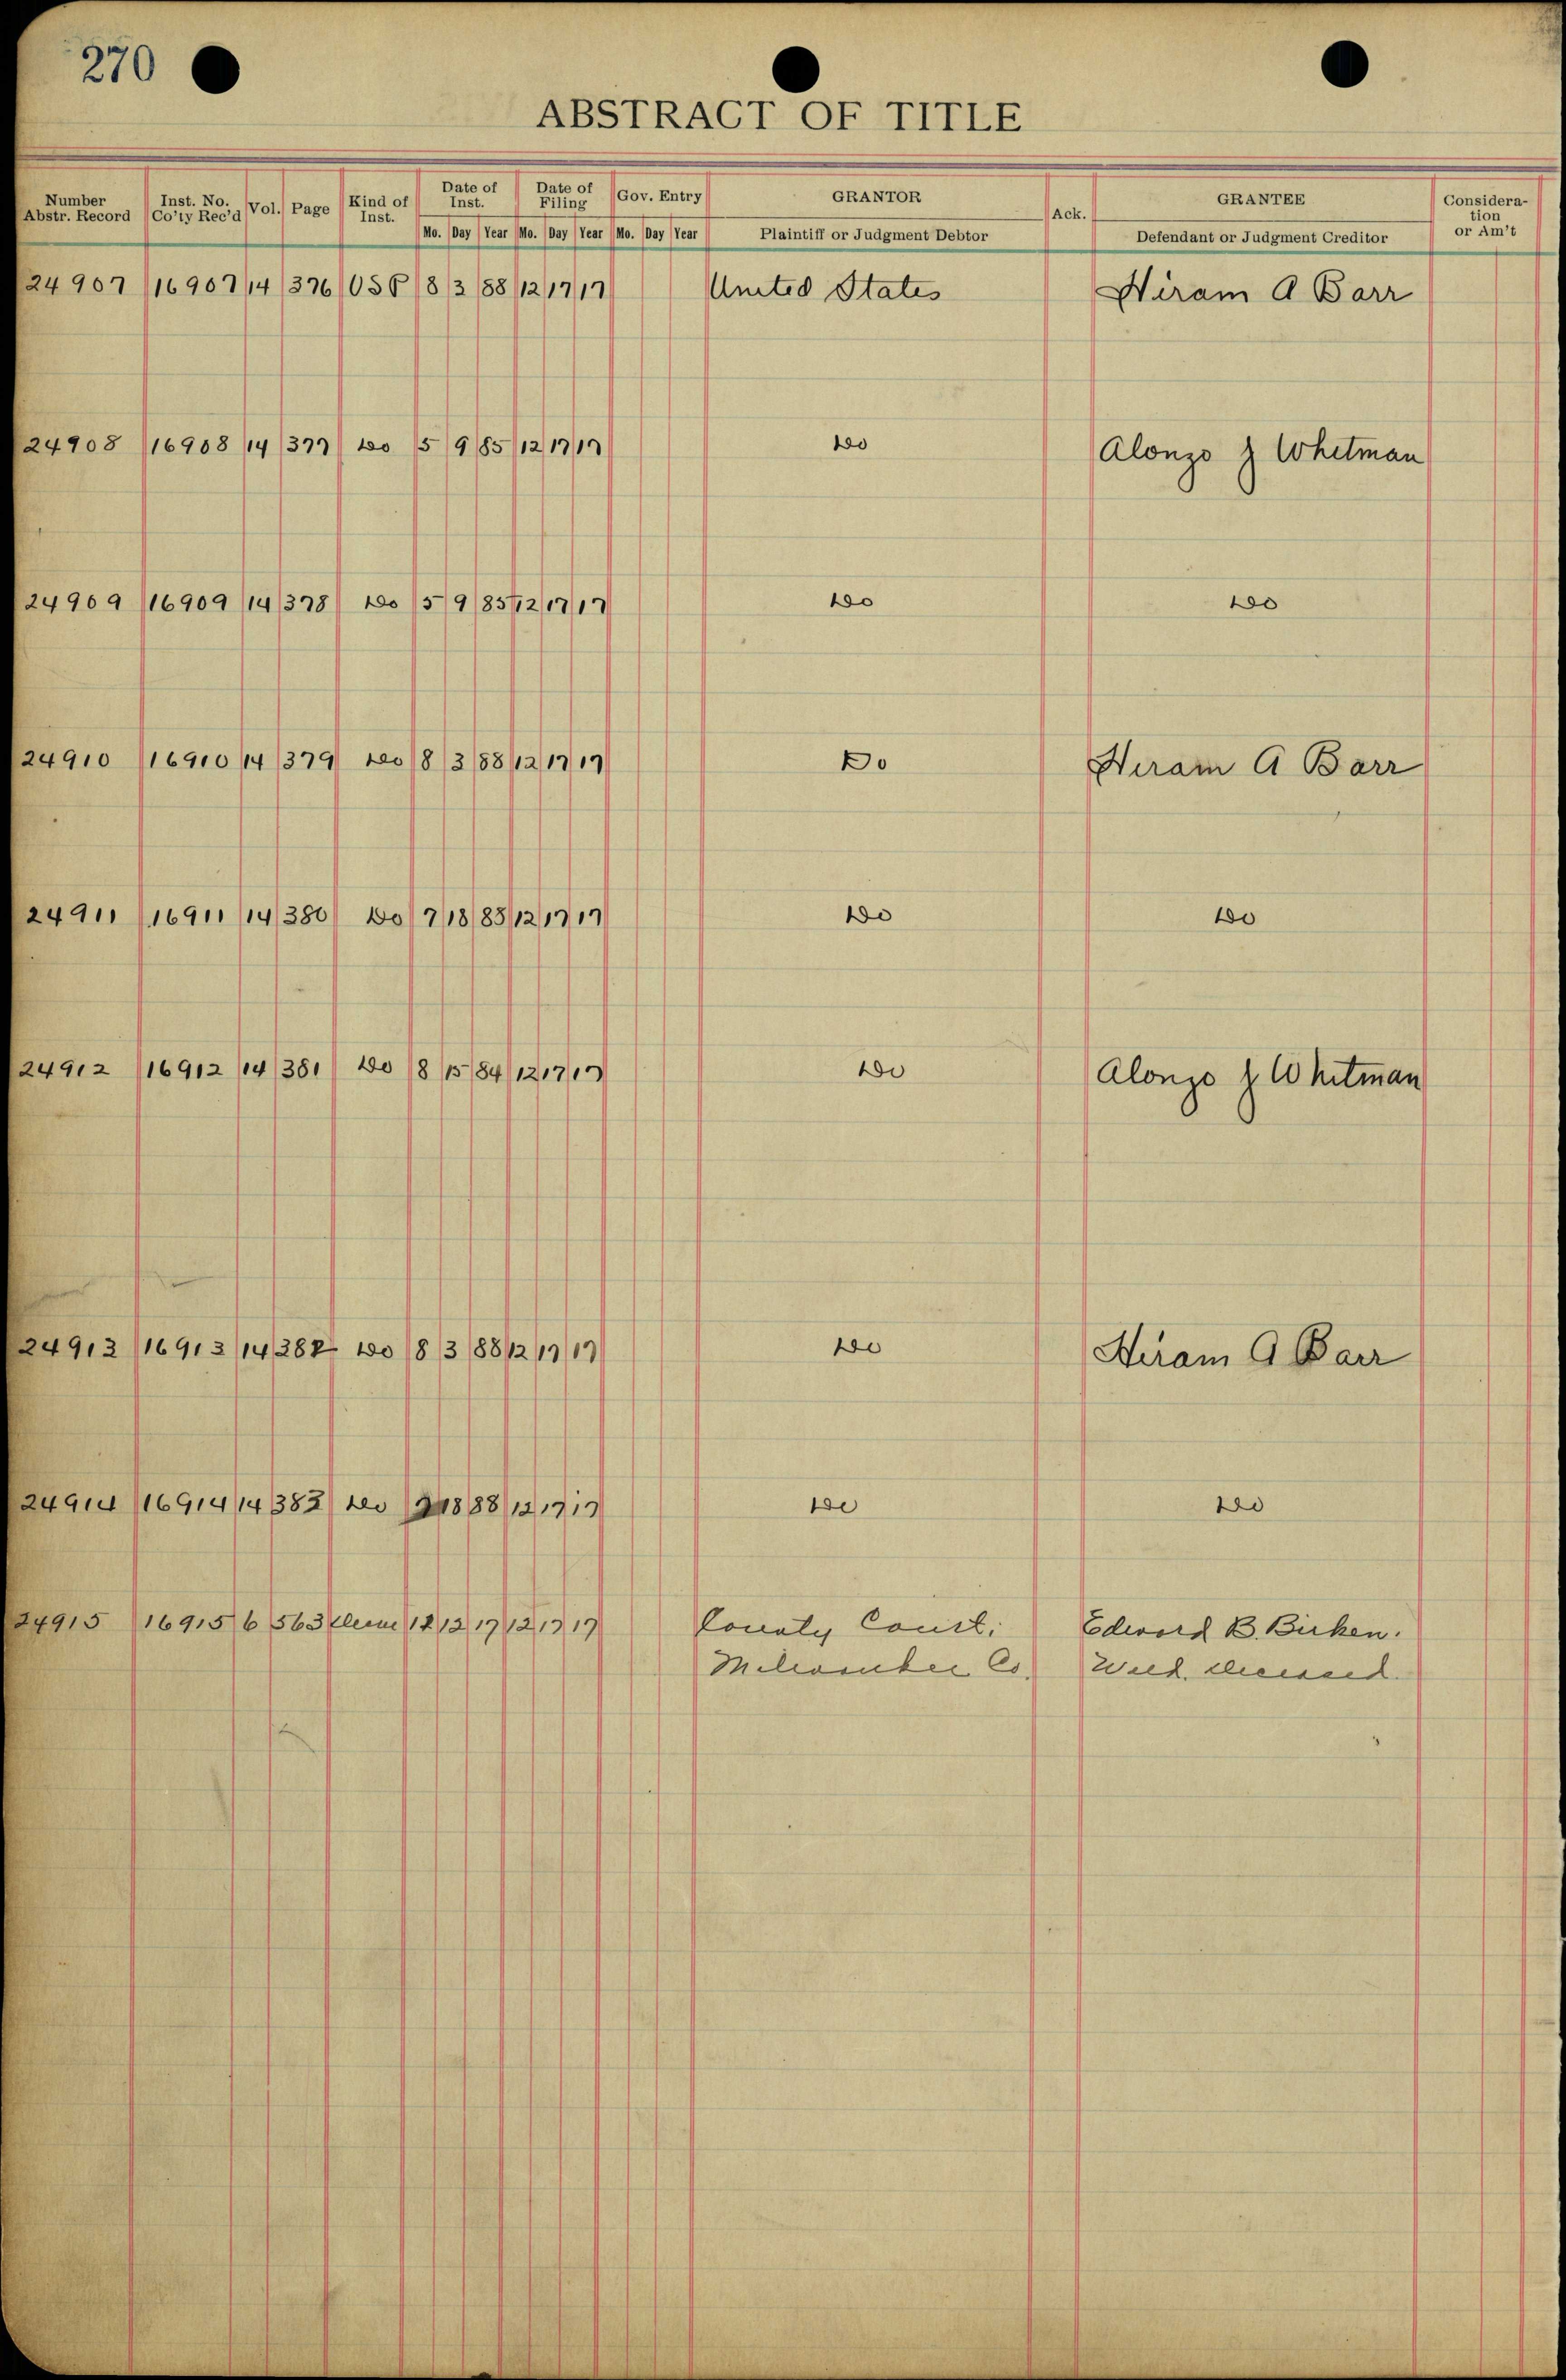 270
ABSTRACT OF TITLE
Number Abstr. Record | Inst. No. Co'ty Rec'd | Vol. | Page | Kind of Inst. | Date of Inst. | Date of Filing | Gov. Entry | GRANTOR | Ack. | GRANTEE | Consideration or Am't
Mo. Day Year | Mo. Day Year | Mo. Day Year | Plaintiff or Judgment Debtor | Defendant or Judgment Creditor
24907 16907 14 376 8 3 88 12 17 17 United States Hiram A Barr
24908 16908 14 377 Do 5 9 85 12 17 17 Do Alonzo J Whitman
24909 16909 14 378 Do 5 9 85 12 17 17 Do Do
24910 16910 14 379 Do 8 3 88 12 17 17 Do Hiram A Barr
24911 16911 14 380 Do 7 18 88 12 17 17 Do Do
24912 16912 14 381 Do 8 15 84 12 17 17 Do Alonzo J Whitman
24913 16913 14 382 Do 8 3 88 12 17 17 Do Hiram A Barr
24914 16914 14 383 Do 18 88 12 17 17 Do Do
24915 16915 6 563 12 13 17 12 17 17 County Court. Edward B. Birken.
Milwaukee Co.